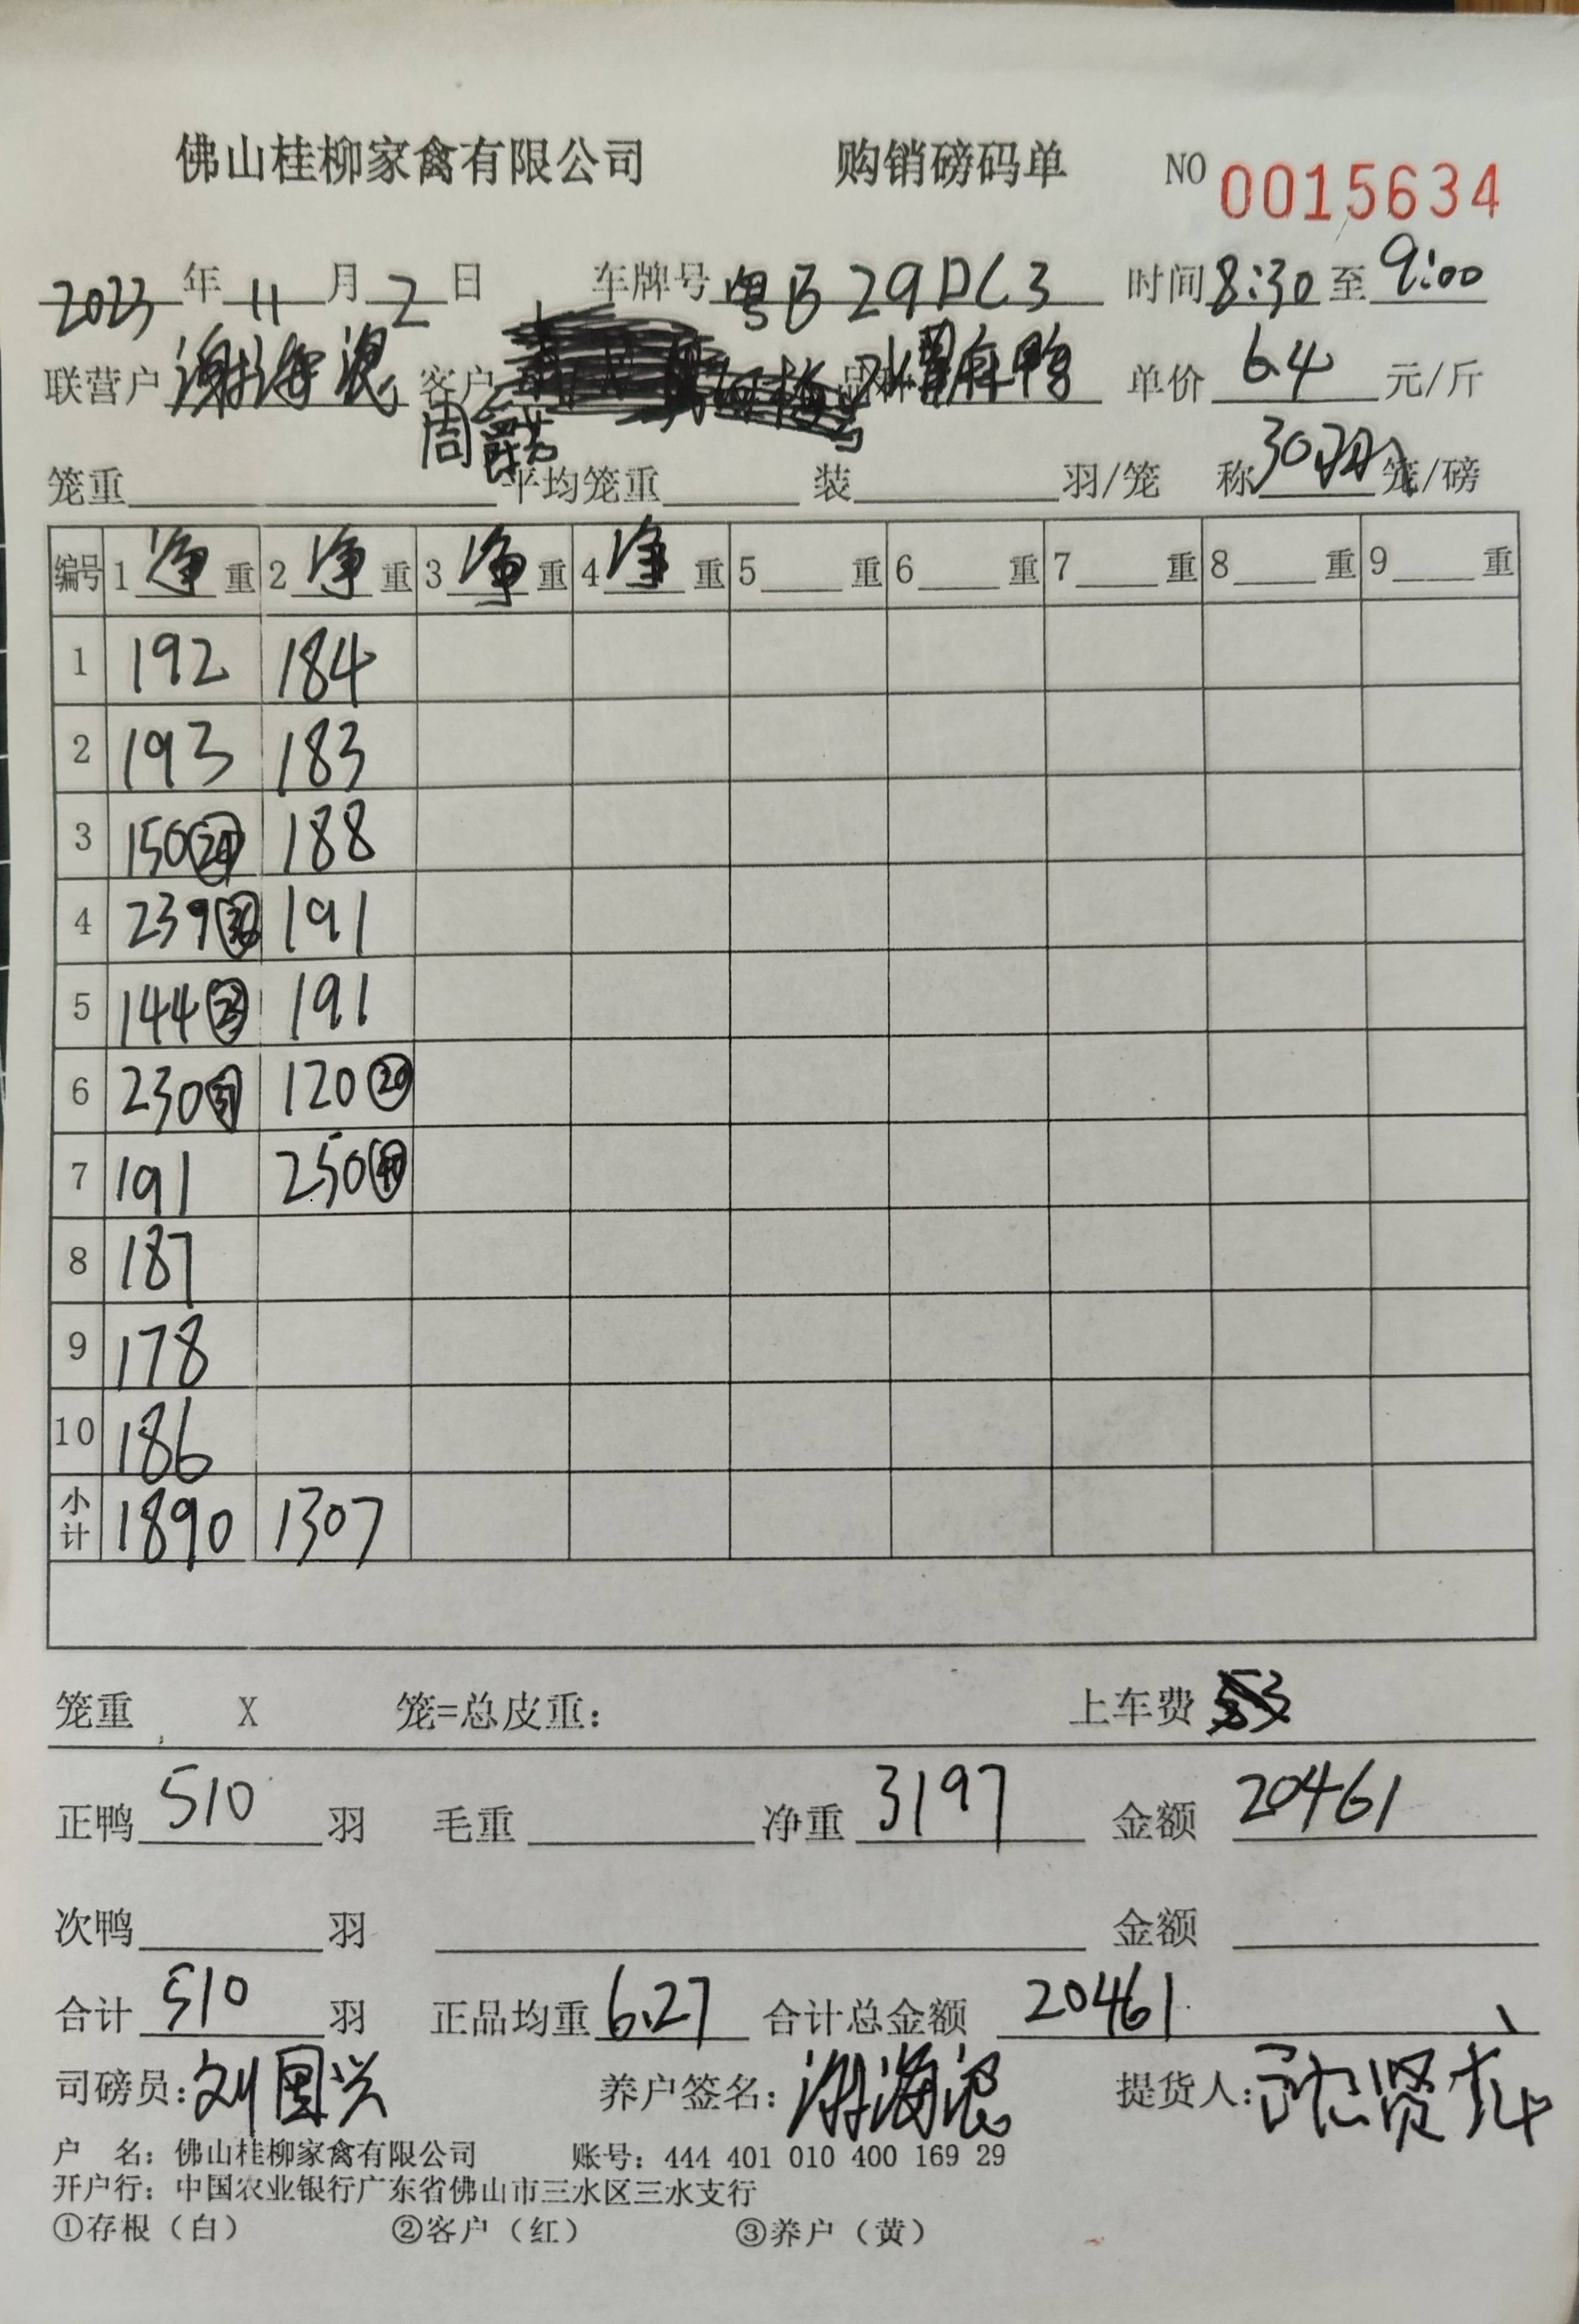 佛山桂柳家禽有限公司 购销磅码单 NO 0015634
2023年11月2日 车牌号 粤B 29DC3 时间 8:30 至 9:00
联营户 谢海浪 客户 品种 鸭 单价 6.4 元/斤
周
笼重 平均笼重 装 羽/笼 称 30羽 笼/磅
编号 1 净 重 2 净 重 3 净 重 4 净 重 5 重 6 重 7 重 8 重 9 重
1 192 184
2 193 183
3 150 24 188
4 239 191
5 144 23 191
6 230 37 120 20
7 191 250 40
8 187
9 178
10 186
小计 1890 1307
笼重 X 笼=总皮重: 上车费
正鸭 510 羽 毛重 净重 3197 金额 20461
次鸭 羽 金额
合计 510 羽 正品均重 6.27 合计总金额 20461
司磅员: 刘国兴 养户签名: 谢海浪 提货人: 贤
户 名: 佛山桂柳家禽有限公司 账号: 444 401 010 400 169 29
开户行: 中国农业银行广东省佛山市三水区三水支行
①存根（白） ②客户（红） ③养户（黄）